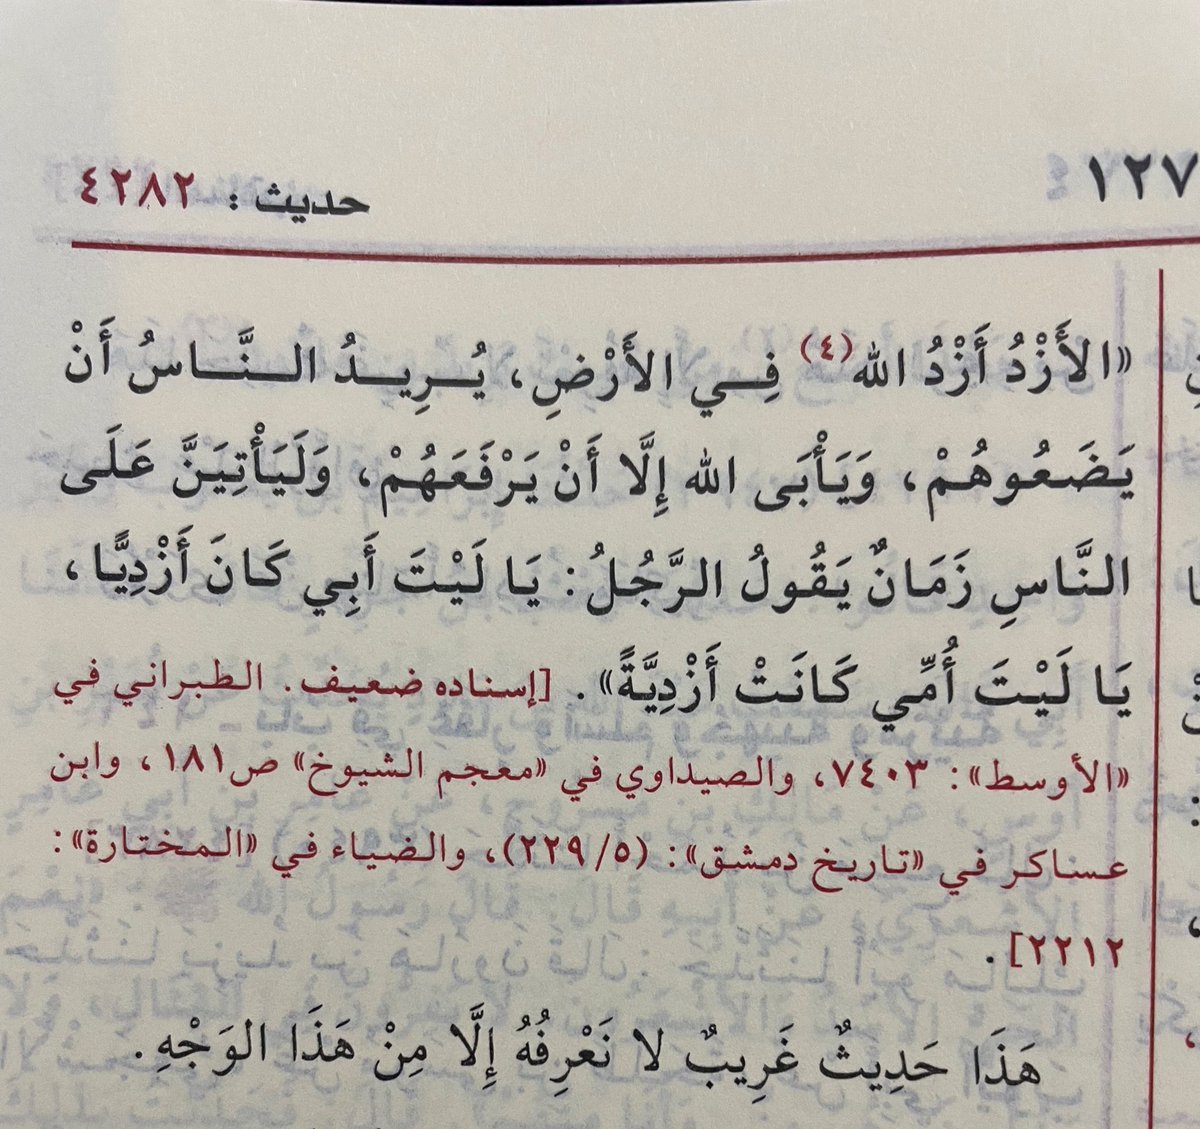 ١٢٧
حديث : ٤٢٨٢
«الأَزْدُ أَزْدُ الله(٤) فِي الأَرْضِ، يُرِيدُ النَّاسُ أَنْ
يَضَعُوهُمْ، وَيَأْبَى الله إِلَّا أَنْ يَرْفَعَهُمْ، وَلَيَأْتِيَنَّ عَلَى
النَّاسِ زَمَانٌ يَقُولُ الرَّجُلُ: يَا لَيْتَ أَبِي كَانَ أَزْدِيًّا،
يَا لَيْتَ أُمِّي كَانَتْ أَزْدِيَّةً». [إسناده ضعيف. الطبراني في
«الأوسط»: ٧٤٠٣، والصيداوي في «معجم الشيوخ» ص١٨١، وابن
عساكر في «تاريخ دمشق»: (٢٢٩/٥)، والضياء في «المختارة»:
٢٢١٢].
هَذَا حَدِيثٌ غَرِيبٌ لا نَعْرِفُهُ إِلَّا مِنْ هَذَا الوَجْهِ.